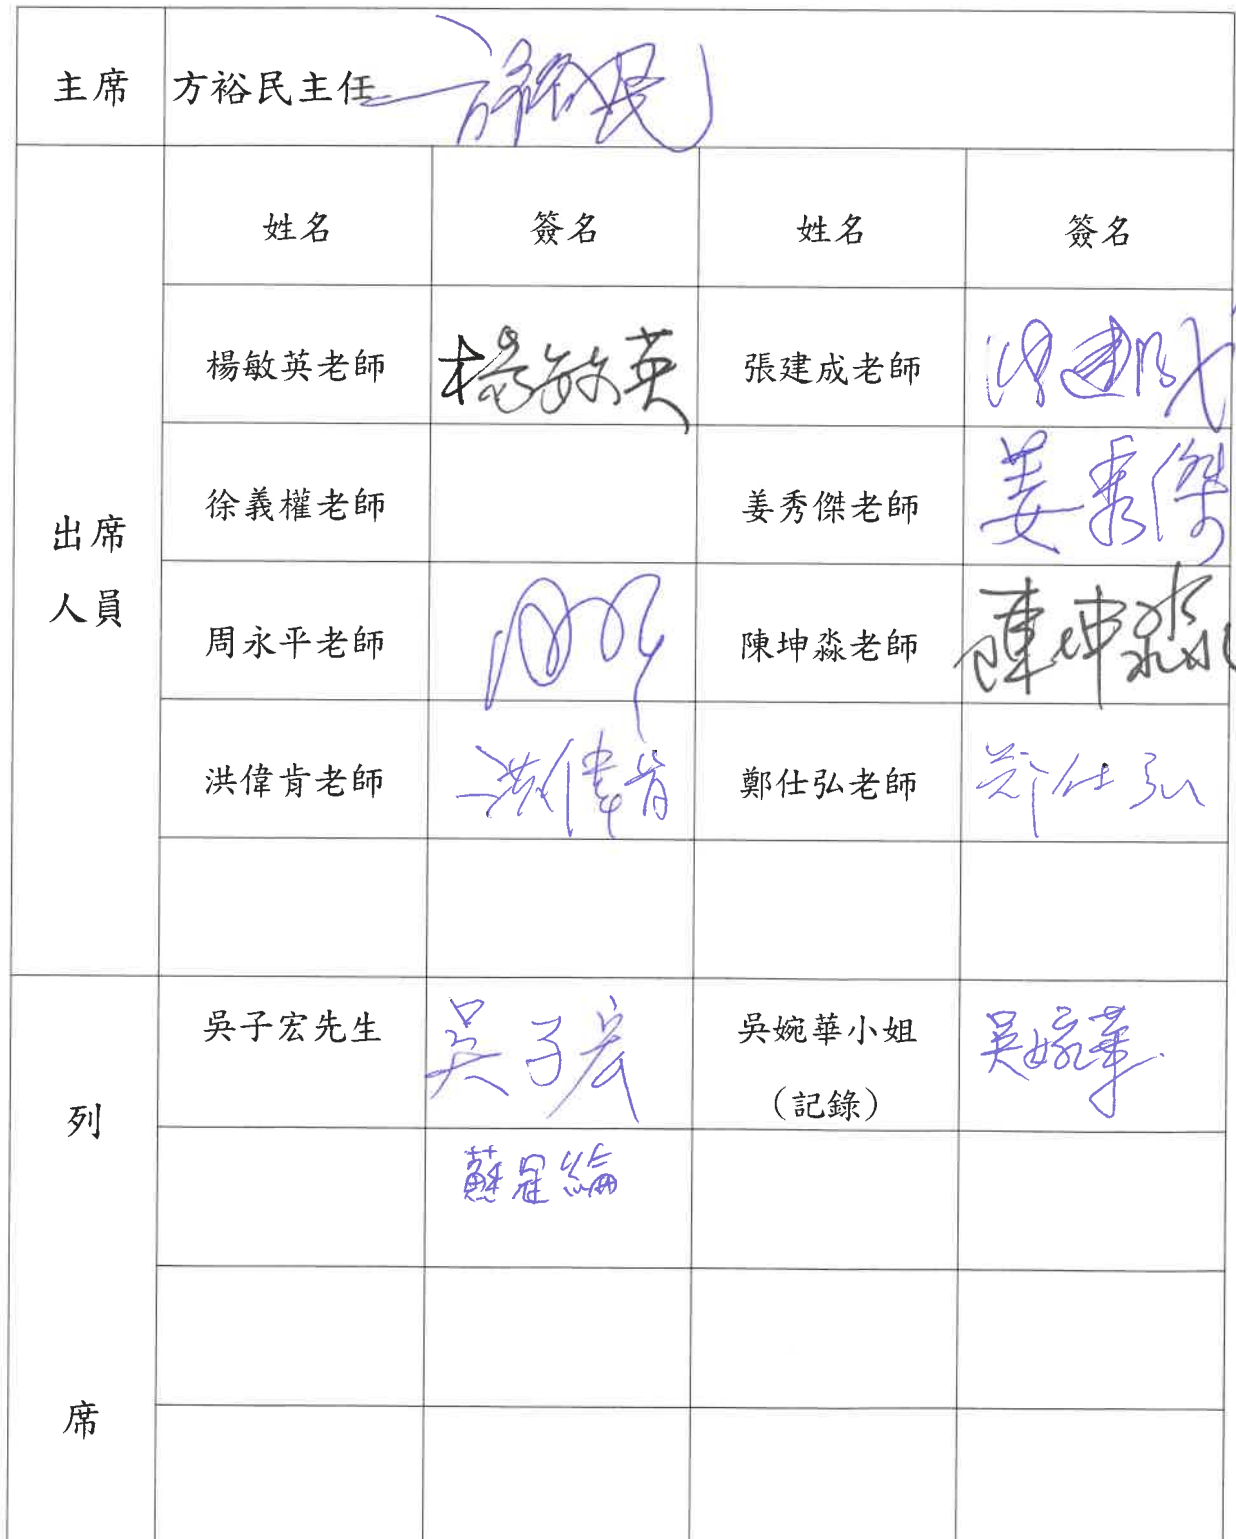 主席 方裕民主任 方裕民
姓名 簽名 姓名 簽名
楊敏英老師 楊敏英 張建成老師 張建成
出席
人員
徐義權老師 姜秀傑老師 姜秀傑
周永平老師 陳坤淼老師 陳坤淼
洪偉肯老師 洪偉肯 鄭仕弘老師 鄭仕弘
列
席
吳子宏先生 吳子宏 吳婉華小姐 吳婉華
（記錄）